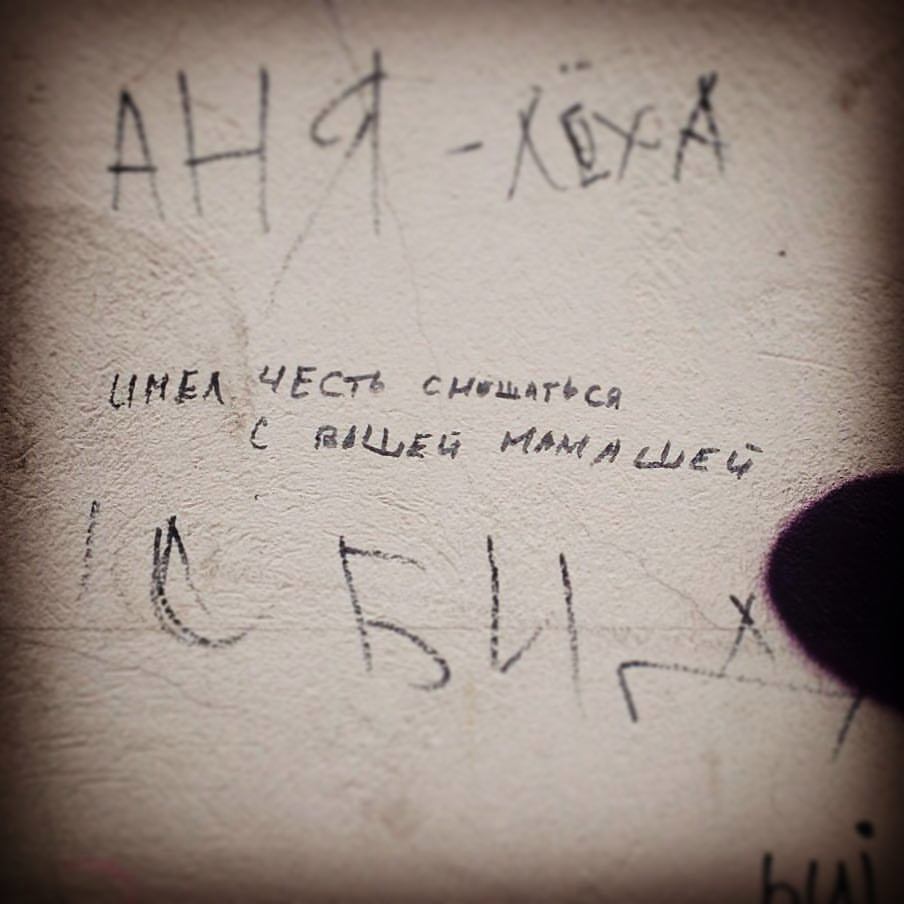 АНЯ - ЛЁХА
ИМЕЛ ЧЕСТЬ СНОШАТЬСЯ
С ВАШЕЙ МАМАШЕЙ